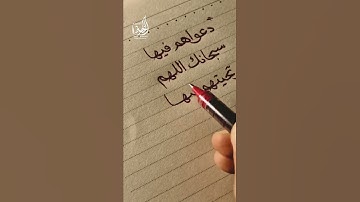 دعواهم فيها
سبحانك اللهم
تحيتهم